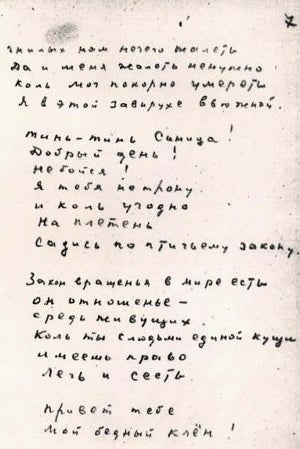 7
гнилых нам нечего жалеть
Да и меня жалеть ненужно
Коль мог покорно умереть
Я в этой завирухе вьюжной.
Тинь-тинь Синица!
Добрый день!
Небойся!
Я тебя нетрону.
и коль угодно
На плетень
Садись по птичьему закону.
Закон вращенья в мире есть
он отношенье –
средь живущих.
Коль ты с людьми единой кущи
имеешь право
Лечь и сесть.
Привет тебе
Мой бедный клён!